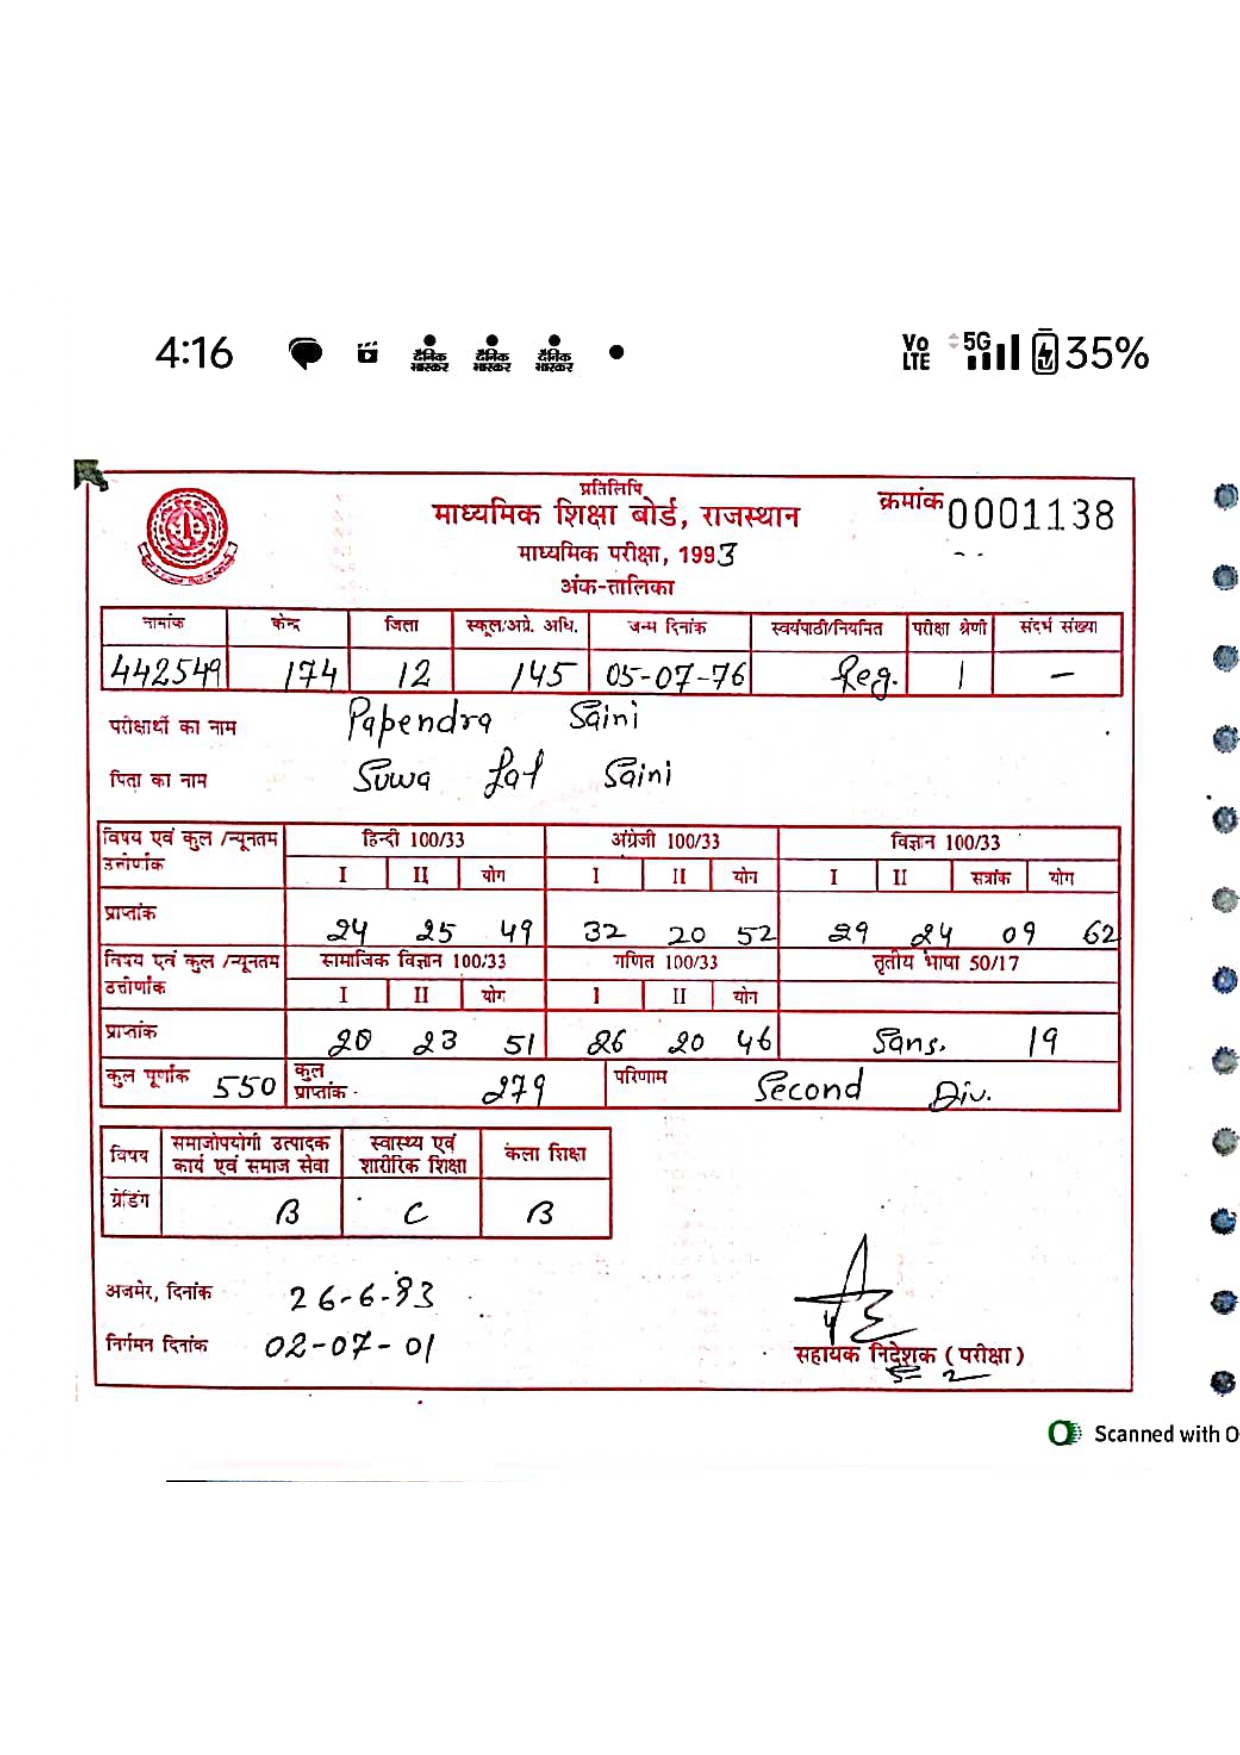 4:16 दैनिक भास्कर दैनिक भास्कर दैनिक भास्कर Vo LTE 5G 35%
प्रतिलिपि
माध्यमिक शिक्षा बोर्ड, राजस्थान क्रमांक 0001138
माध्यमिक परीक्षा, 1993
अंक-तालिका
नामांक केन्द्र जिला स्कूल/अग्रे. अधि. जन्म दिनांक स्वयंपाठी/नियमित परीक्षा श्रेणी संदर्भ संख्या
442549 174 12 145 05-07-76 Reg. 1 —
परीक्षार्थी का नाम Papendra Saini
पिता का नाम Suwa Lal Saini
विषय एवं कुल /न्यूनतम हिन्दी 100/33 अंग्रेजी 100/33 विज्ञान 100/33
उत्तीर्णांक I II योग I II योग I II सत्रांक योग
प्राप्तांक 24 25 49 32 20 52 29 24 09 62
विषय एवं कुल /न्यूनतम सामाजिक विज्ञान 100/33 गणित 100/33 तृतीय भाषा 50/17
उत्तीर्णांक I II योग I II योग
प्राप्तांक 28 23 51 26 20 46 Sans. 19
कुल पूर्णांक 550 कुल प्राप्तांक 279 परिणाम Second Div.
विषय समाजोपयोगी उत्पादक कार्य एवं समाज सेवा स्वास्थ्य एवं शारीरिक शिक्षा कला शिक्षा
ग्रेडिंग B C B
अजमेर, दिनांक 26-6-93
निर्गमन दिनांक 02-07-01
सहायक निदेशक (परीक्षा)
Scanned with O